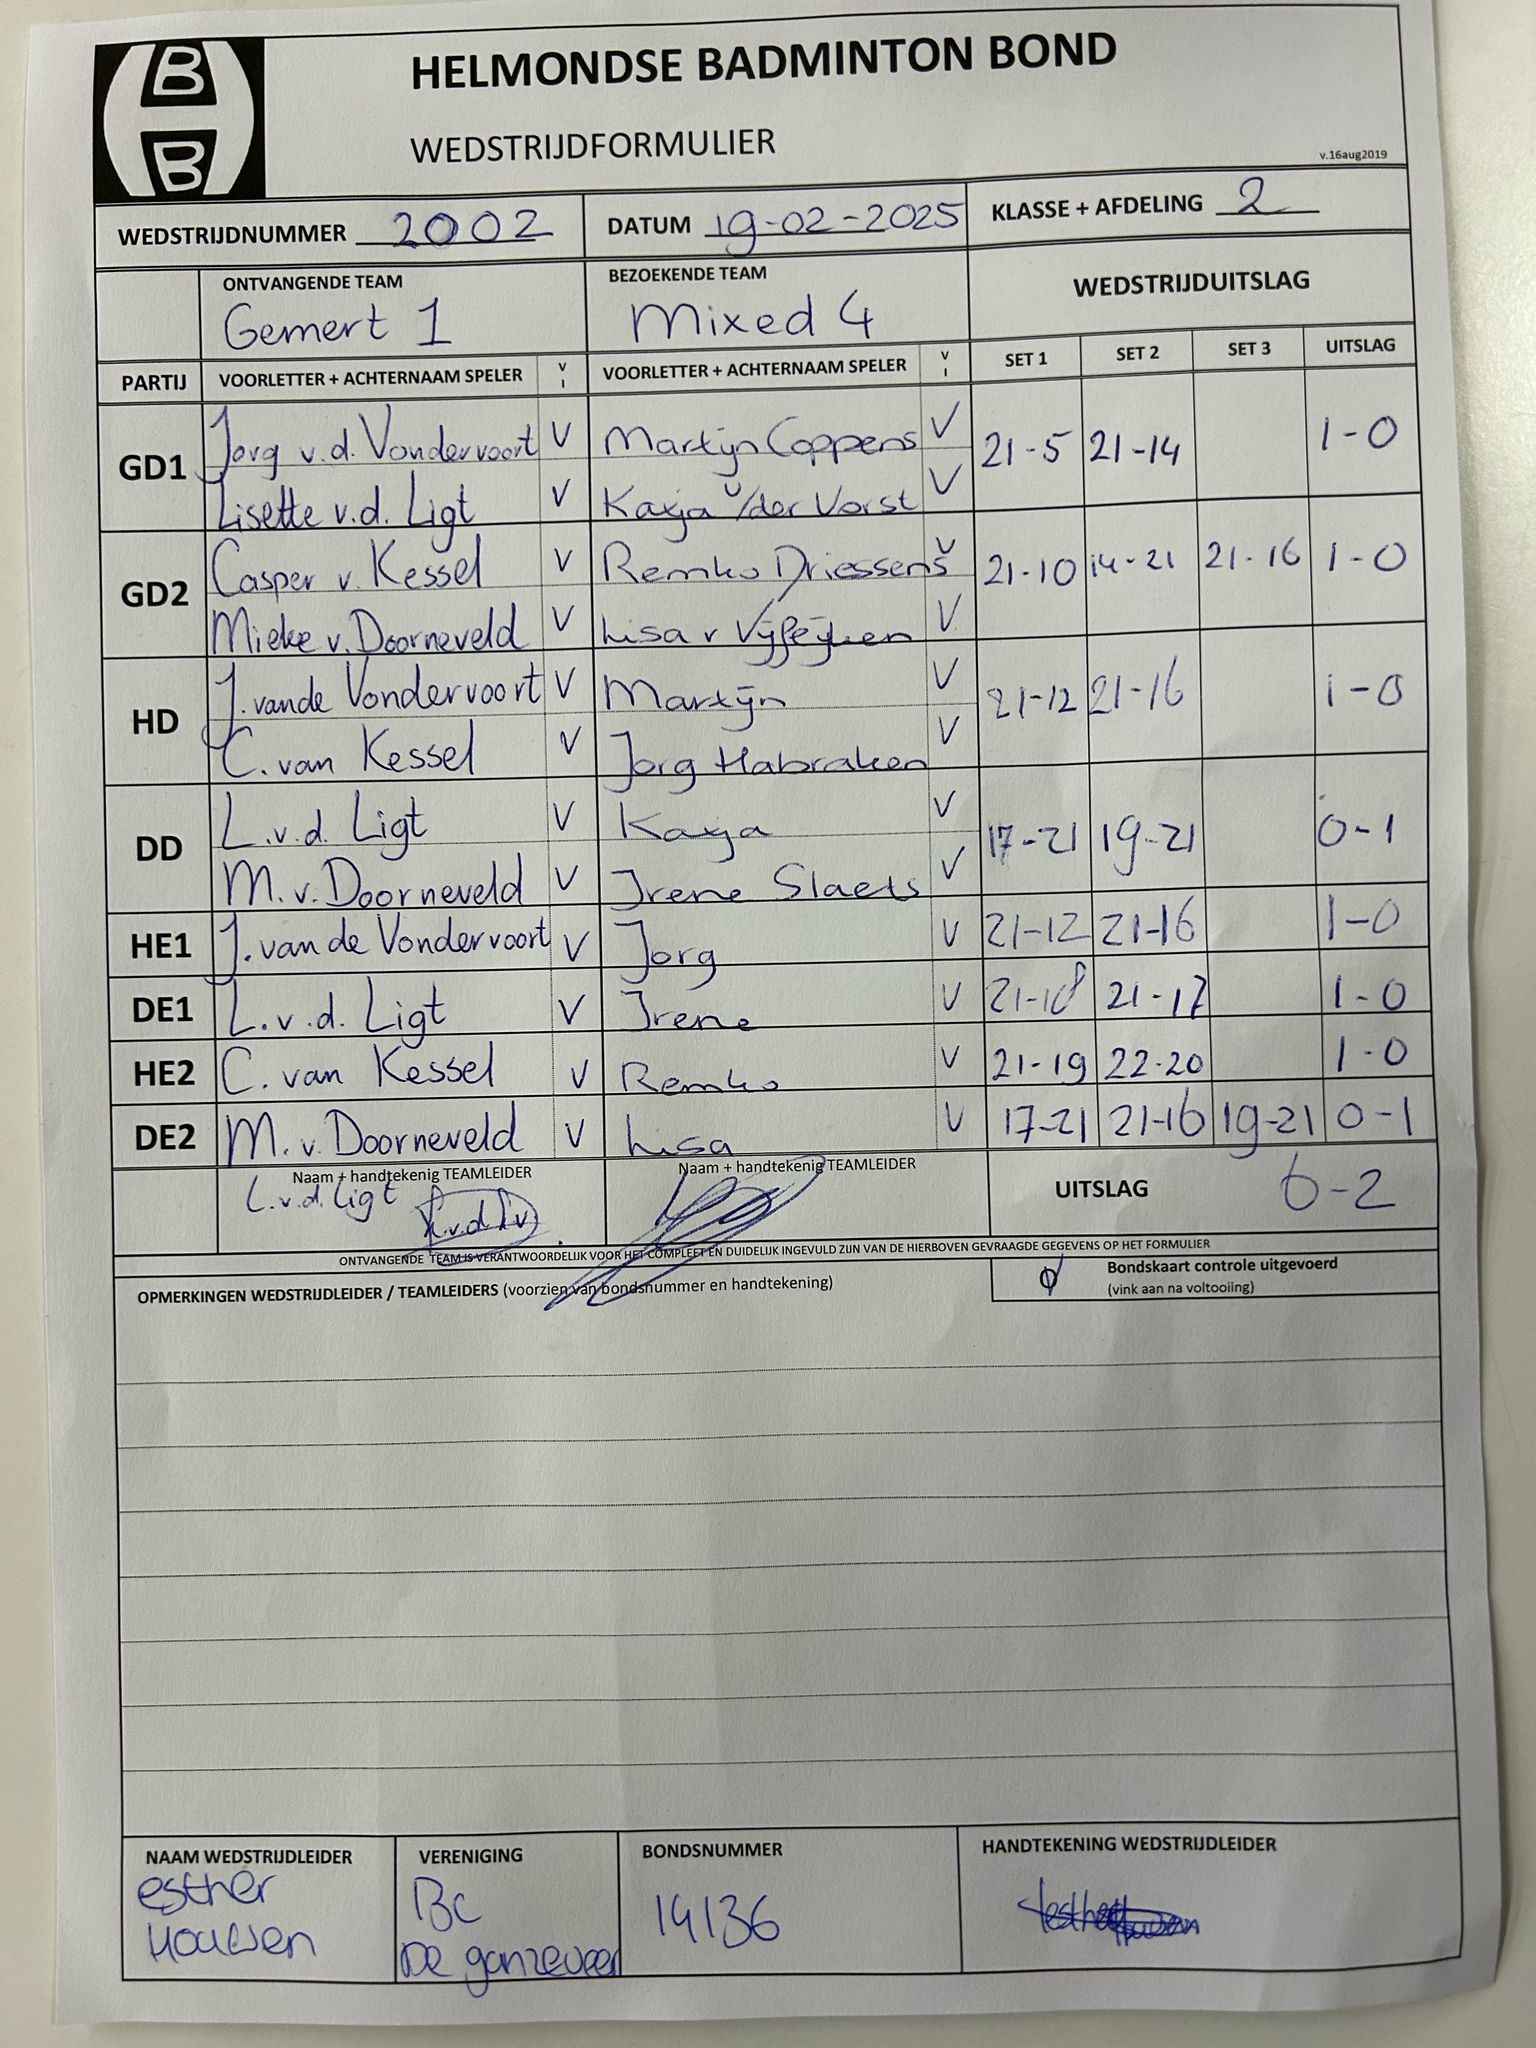 B
B
HELMONDSE BADMINTON BOND
WEDSTRIJDFORMULIER
v.16aug2019
WEDSTRIJDNUMMER 2002 DATUM 19-02-2025 KLASSE + AFDELING 2
ONTVANGENDE TEAM BEZOEKENDE TEAM WEDSTRIJDUITSLAG
Gemert 1 Mixed 4
PARTIJ VOORLETTER + ACHTERNAAM SPELER V I VOORLETTER + ACHTERNAAM SPELER V I SET 1 SET 2 SET 3 UITSLAG
GD1 Jorg v.d. Vondervoort V Martijn Coppens V 21-5 21-14 1-0
Lisette v.d. Ligt V Kaya v/der Vorst V
GD2 Casper v. Kessel V Remko Driessens V 21-10 14-21 21-16 1-0
Mieke v. Doorneveld V Lisa v Vijfeijken V
HD J. van de Vondervoort V Martijn V 21-12 21-16 1-0
C. van Kessel V Jorg Habraken V
DD L.v.d. Ligt V Kaya V 17-21 19-21 0-1
M. v. Doorneveld V Irene Slaets V
HE1 J. van de Vondervoort V Jorg V 21-12 21-16 1-0
DE1 L.v.d. Ligt V Irene V 21-18 21-17 1-0
HE2 C. van Kessel V Remko V 21-19 22-20 1-0
DE2 M. v. Doorneveld V Lisa V 17-21 21-16 19-21 0-1
Naam + handtekenig TEAMLEIDER Naam + handtekenig TEAMLEIDER UITSLAG 6-2
L.v.d. Ligt
ONTVANGENDE TEAM IS VERANTWOORDELIJK VOOR HET COMPLEET EN DUIDELIJK INGEVULD ZIJN VAN DE HIERBOVEN GEVRAAGDE GEGEVENS OP HET FORMULIER
OPMERKINGEN WEDSTRIJDLEIDER / TEAMLEIDERS (voorzien van bondsnummer en handtekening) Bondskaart controle uitgevoerd
(vink aan na voltooiing)
NAAM WEDSTRIJDLEIDER VERENIGING BONDSNUMMER HANDTEKENING WEDSTRIJDLEIDER
esther BC 14136
Houwen De ganzeveer